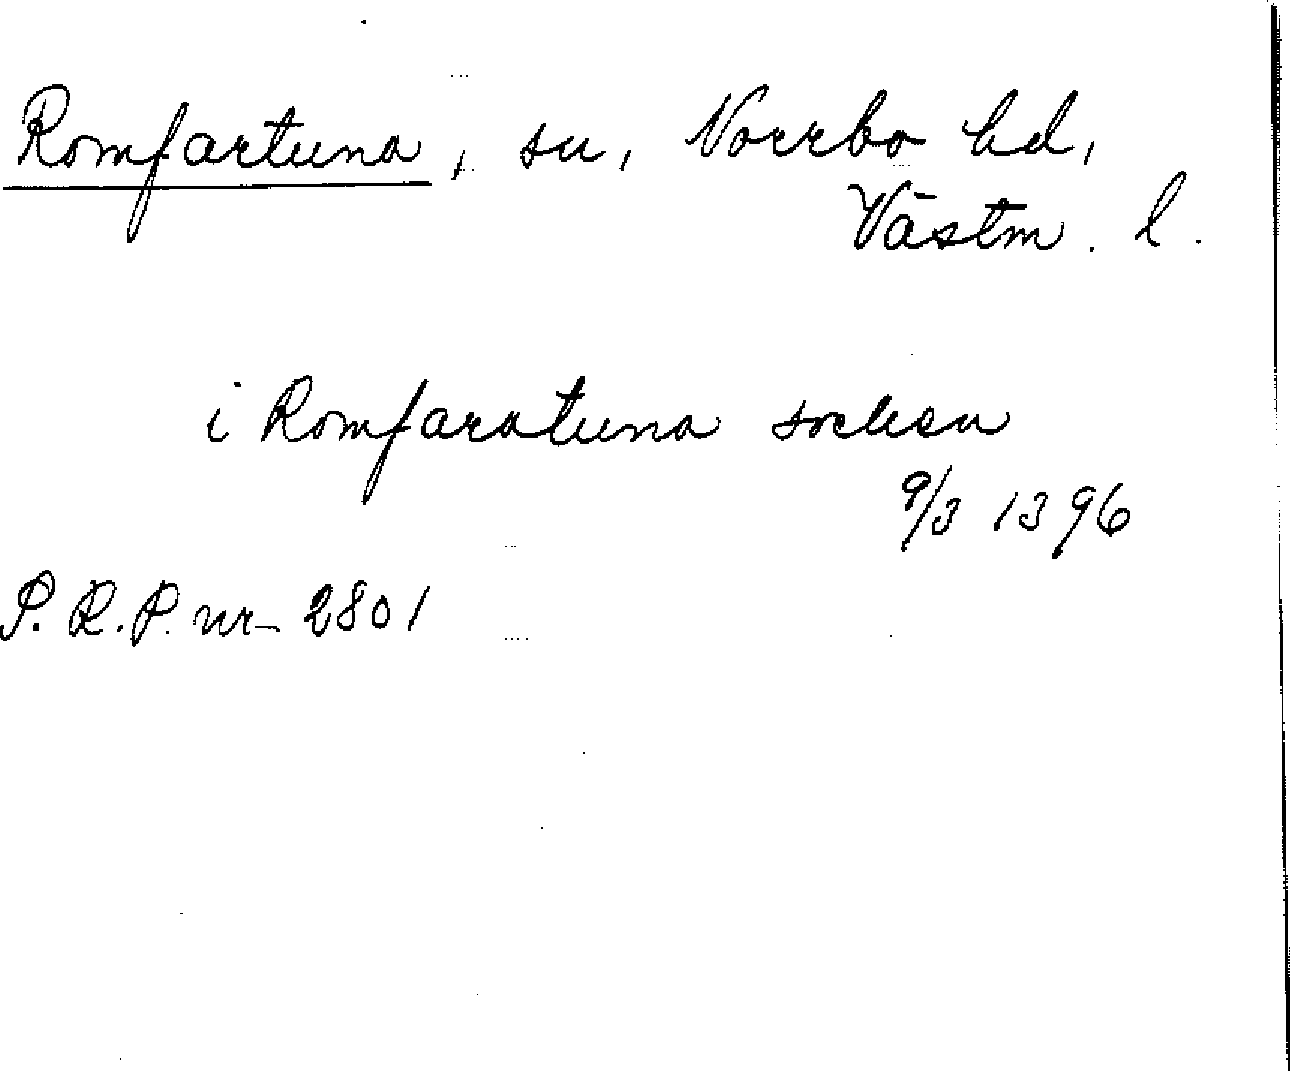 Romfartuna, sn, Norrbo hd,
Västm. l.
i Romfaratuna socken
9/3 1396
S. R. P. nr 2801